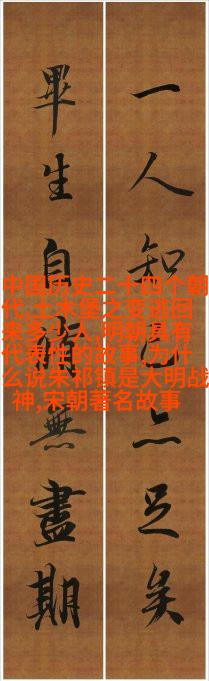 一人知己亦足矣
畢生自修無盡期
中国历史二十四个朝
代,土木堡之变逃回
来多少人,明朝具有
代表性的故事,为什
么说朱祁镇是大明战
神,宋朝著名故事